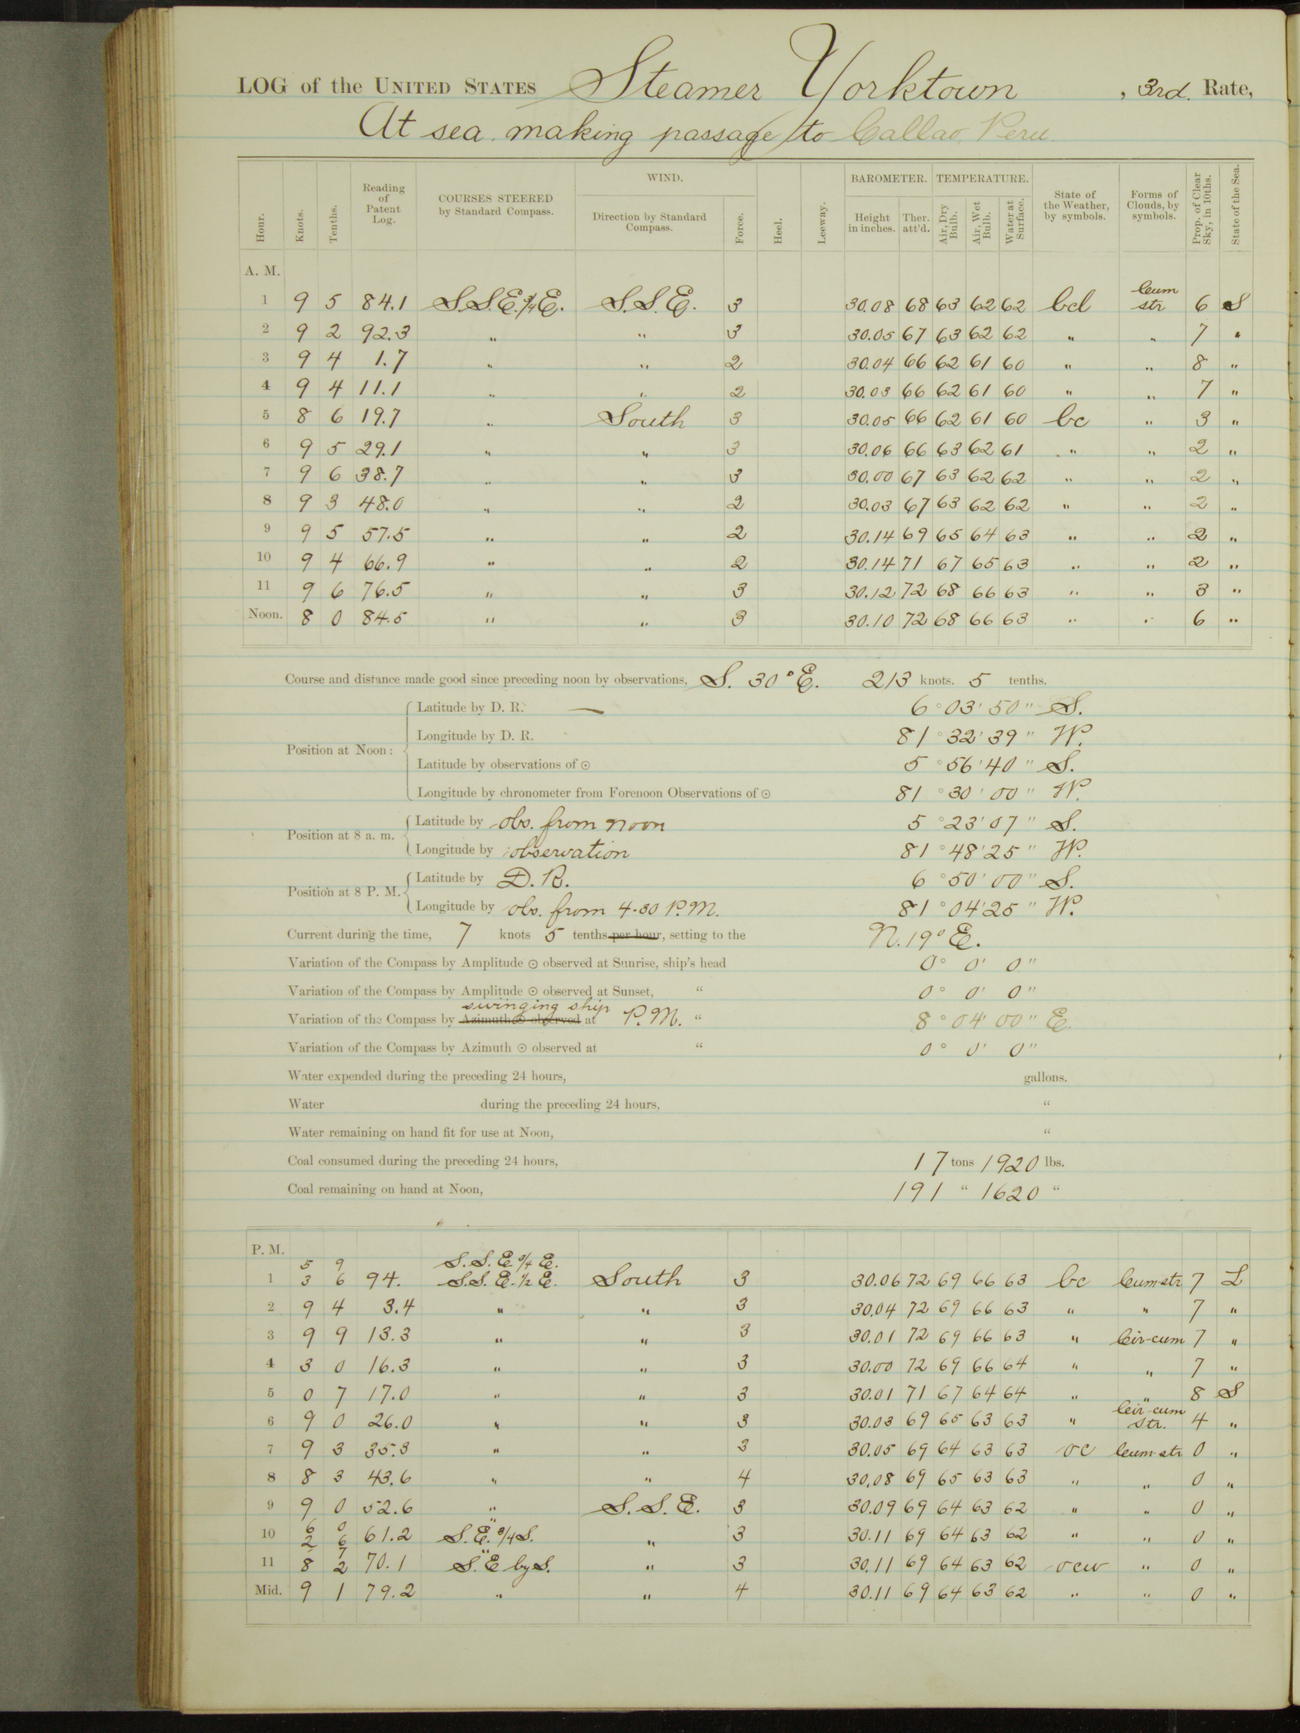 LOG of the UNITED STATES Steamer Yorktown, 3rd. Rate,
At sea making passage to Callao Peru
WIND. BAROMETER. TEMPERATURE.
Hour. Knots. Tenths. Reading of Patent Log. COURSES STEERED by Standard Compass. Direction by Standard Compass. Force. Heel. Leeway. Height in inches. Ther. att'd. Air, Dry Bulb. Air, Wet Bulb. Water at Surface. State of the Weather, by symbols. Forms of Clouds, by symbols. Prop. of Clear Sky, in 10ths. State of the Sea.
A. M.
1 9 5 84.1 S.S.E.3/4E. S.S.E. 3 30.08 68 63 62 62 bcd Cum str 6 S
2 9 2 92.3 " " 3 30.05 67 63 62 62 " " 7 "
3 9 4 1.7 " " 2 30.04 66 62 61 60 " " 8 "
4 9 4 11.1 " " 2 30.03 66 62 61 60 " " 7 "
5 8 6 19.7 " South 3 30.05 66 62 61 60 bc " 3 "
6 9 5 29.1 " " 3 30.06 66 63 62 61 " " 2 "
7 9 6 38.7 " " 3 30.00 67 63 62 62 " " 2 "
8 9 3 48.0 " " 2 30.03 67 63 62 62 " " 2 "
9 9 5 57.5 " " 2 30.14 69 65 64 63 " " 2 "
10 9 4 66.9 " " 2 30.14 71 67 65 63 " " 2 "
11 9 6 76.5 " " 3 30.12 72 68 66 63 " " 3 "
Noon. 8 0 84.5 " " 3 30.10 72 68 66 63 " " 6 "
Course and distance made good since preceding noon by observations, S. 30° E. 213 knots. 5 tenths.
Position at Noon: Latitude by D. R. — 6° 03' 50" S.
Longitude by D. R. 81° 32' 39" W.
Latitude by observations of ☉ 5° 56' 40" S.
Longitude by chronometer from Forenoon Observations of ☉ 81° 30' 00" W.
Position at 8 a. m. Latitude by obs. from noon 5° 23' 07" S.
Longitude by observation 81° 48' 25" W.
Position at 8 P. M. Latitude by D. R. 6° 50' 00" S.
Longitude by obs. from 4-30 P.M. 81° 04' 25" W.
Current during the time, 7 knots 5 tenths per hour, setting to the N. 19° E.
Variation of the Compass by Amplitude ☉ observed at Sunrise, ship's head 0° 0' 0"
Variation of the Compass by Amplitude ☉ observed at Sunset, " 0° 0' 0"
swinging ship
Variation of the Compass by Azimuth ☉ observed at P.M. " 8° 04' 00" E.
Variation of the Compass by Azimuth ☉ observed at " 0° 0' 0"
Water expended during the preceding 24 hours, gallons.
Water during the preceding 24 hours, "
Water remaining on hand fit for use at Noon, "
Coal consumed during the preceding 24 hours, 17 tons 1920 lbs.
Coal remaining on hand at Noon, 191 " 1620 "
P. M.
5 9 S.S.E.3/4 E.
1 3 6 94. S.S.E.1/2 E. South 3 30.06 72 69 66 63 bc Cum str 7 L
2 9 4 3.4 " " 3 30.04 72 69 66 63 " " 7 "
3 9 9 13.3 " " 3 30.01 72 69 66 63 " Cir-cum 7 "
4 3 0 16.3 " " 3 30.00 72 69 66 64 " " 7 "
5 0 7 17.0 " " 3 30.01 71 67 64 64 " " 8 S
6 9 0 26.0 " " 3 30.03 69 65 63 63 " Cir-cum str. 4 "
7 9 3 35.3 " " 3 30.05 69 64 63 63 oc Cum str 0 "
8 8 3 43.6 " " 4 30.08 69 65 63 63 " " 0 "
9 9 0 52.6 " S.S.E. 3 30.09 69 64 63 62 " " 0 "
6 0 "
10 2 6 61.2 S.E.3/4S. " 3 30.11 69 64 63 62 " " 0 "
7 "
11 8 2 70.1 S.E by S. " 3 30.11 69 64 63 62 ocw " 0 "
Mid. 9 1 79.2 " " 4 30.11 69 64 63 62 " " 0 "